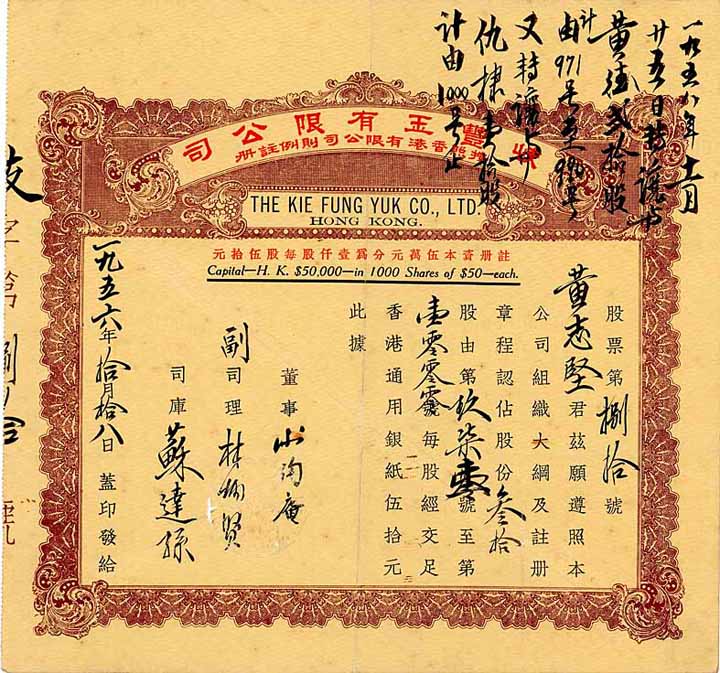 一九五八年十一月
廿五日轉讓與
黃 拾股
計由971号至990号
又轉讓与
仇棣壹拾股
計由 1000号止
豐玉有限公司
香港有限公司則例註册
THE KIE FUNG YUK CO., LTD.
HONG KONG.
註册資本伍萬元分爲壹仟股每股伍拾元
Capital—H. K. $50,000—in 1000 Shares of $50—each.
股票第捌拾號
黃志堅君茲願遵照本
公司組織大綱及註册
章程認佔股份叁拾
股由第玖柒壹號至第
壹零零零號每股經交足
香港通用銀紙伍拾元
此據
董事
副司理 林 賢
司庫 蘇達孫
一九五六年拾月拾八日蓋印發給